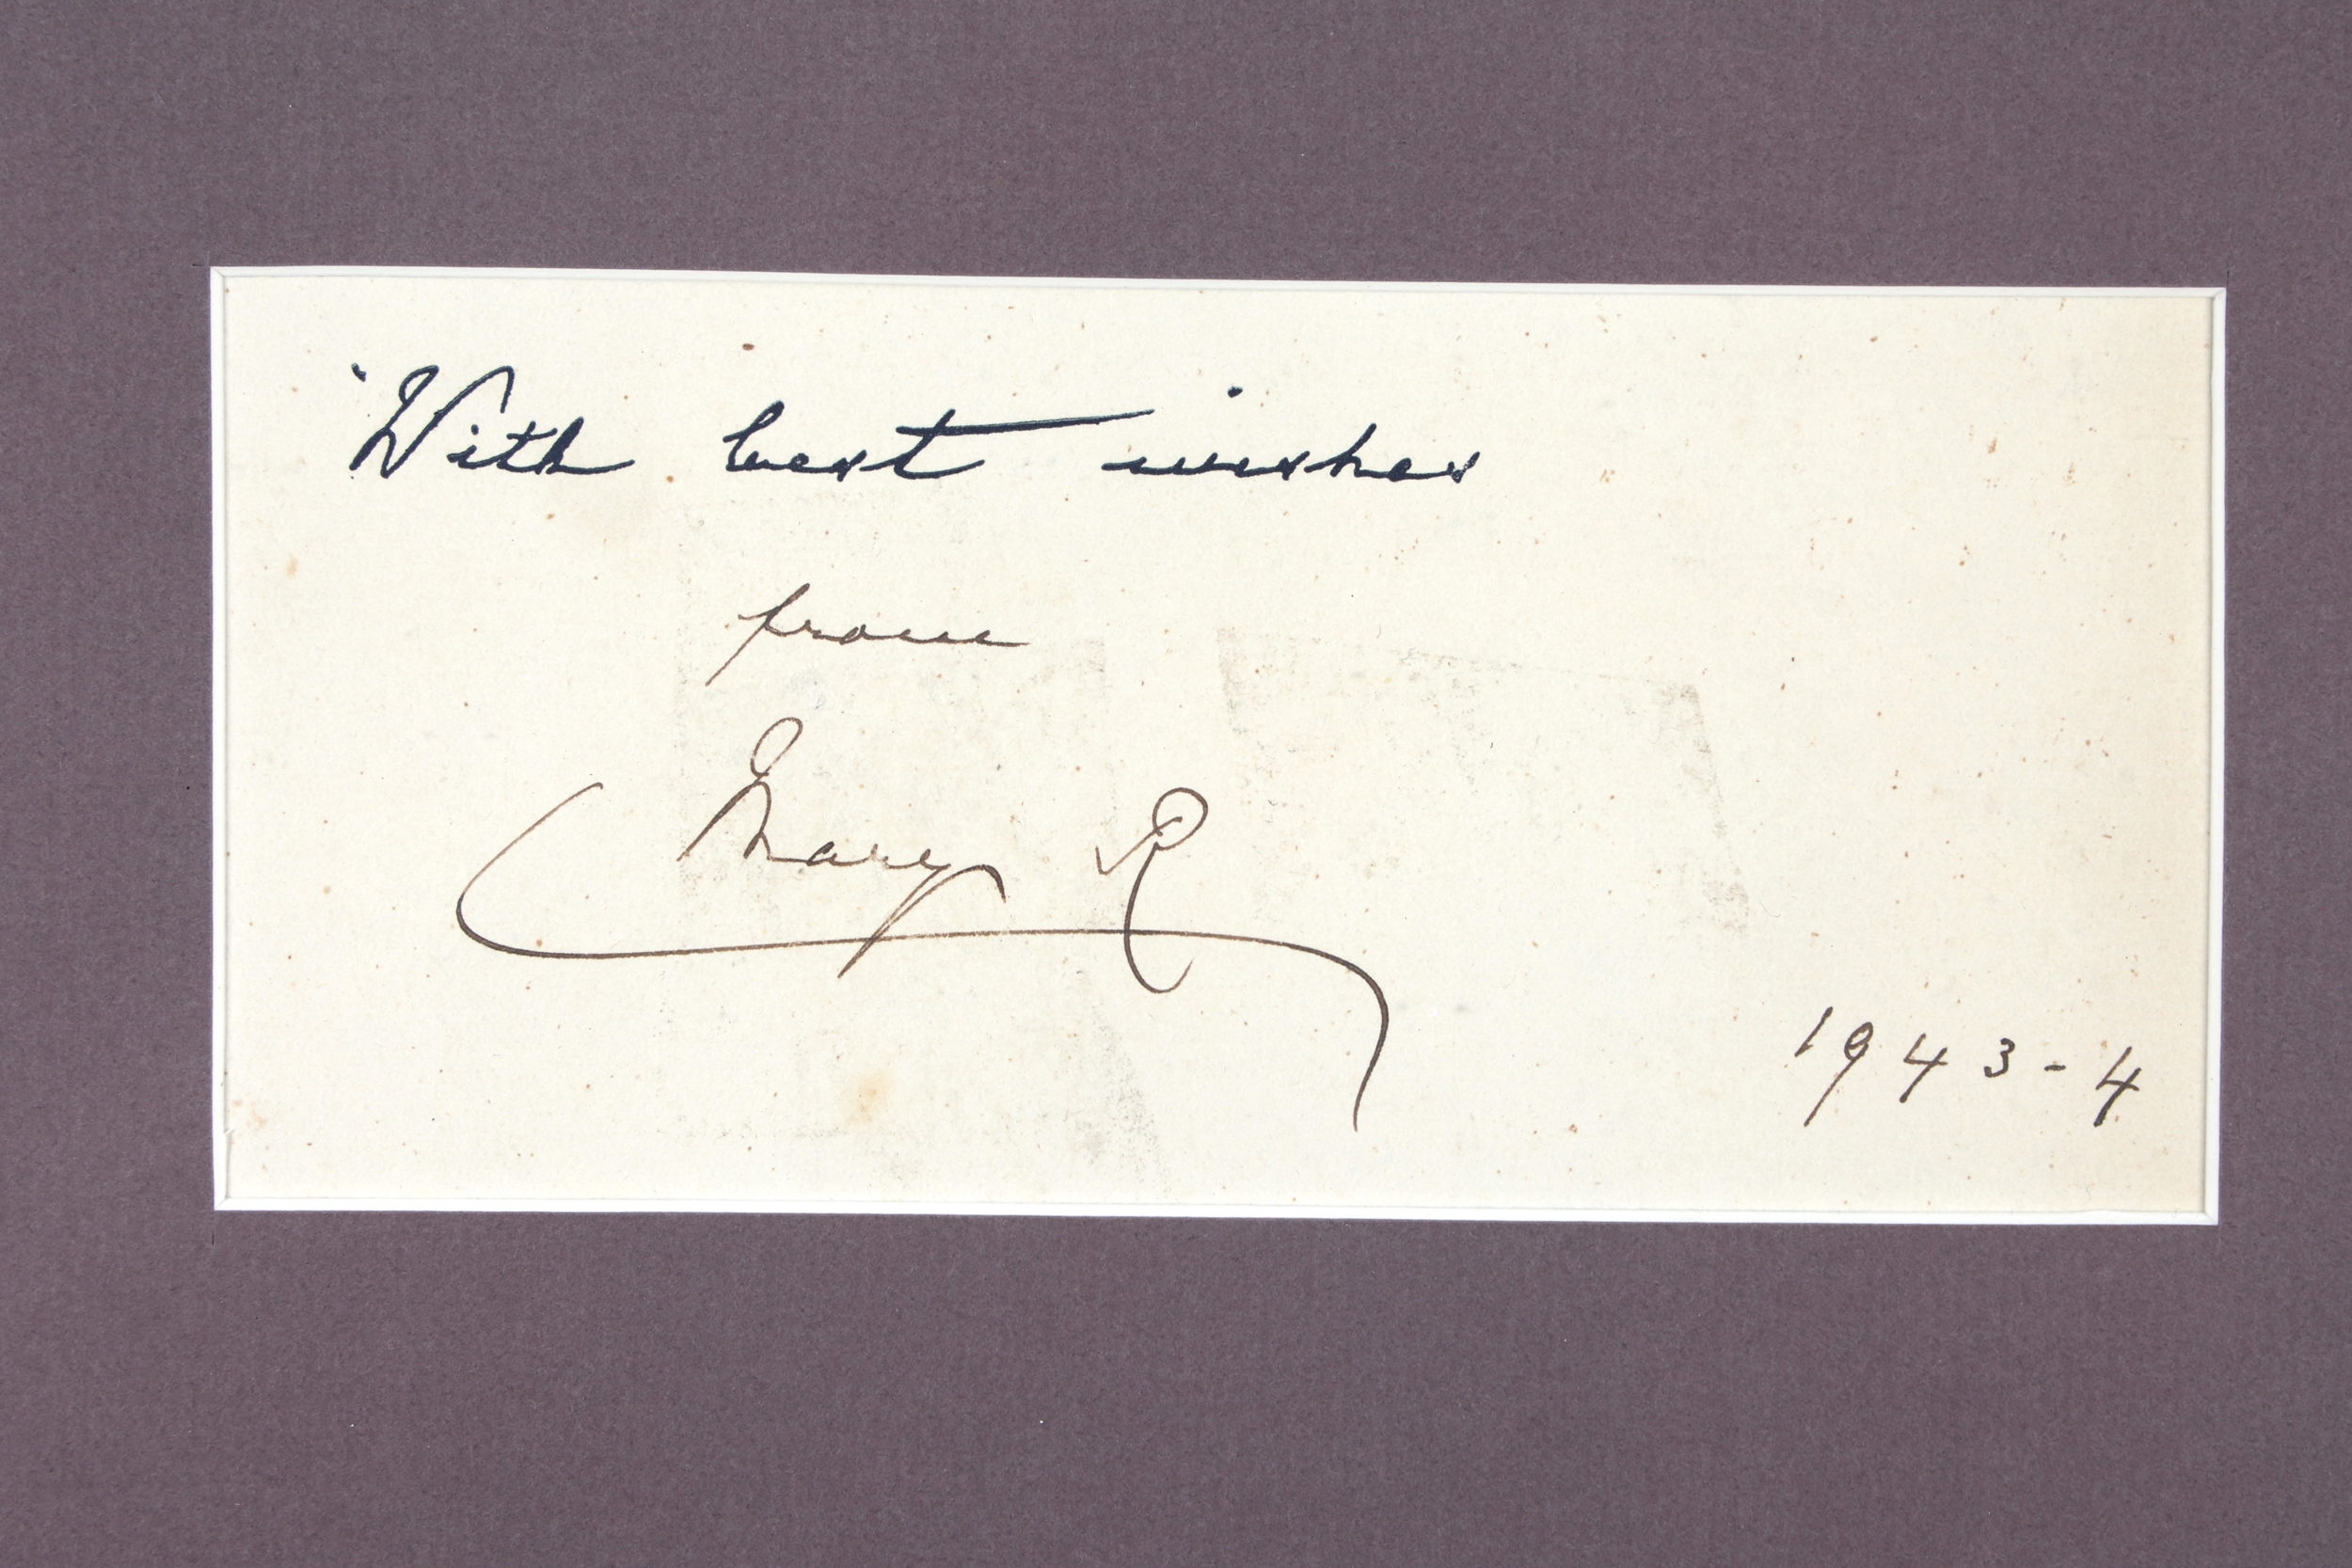 With best wishes
from
Mary R
1943-4